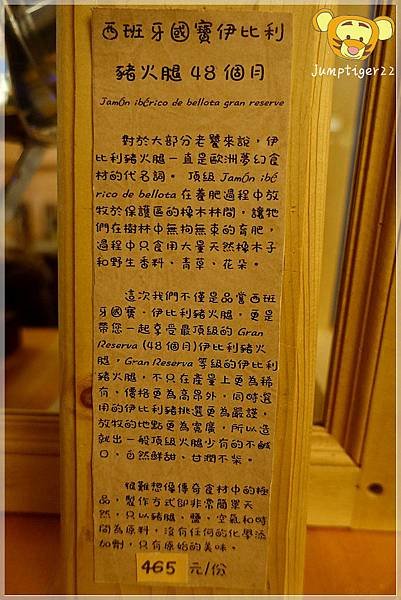 西班牙國寶伊比利
豬火腿48個月
Jamón ibérico de bellota gran reserve
對於大部分老饕來說，伊
比利豬火腿一直是歐洲夢幻食
材的代名詞。頂級 Jamón ibé
rico de bellota 在養肥過程中放
牧於保護區的橡木林間，讓牠
們在樹林中無拘無束的育肥，
過程中只食用大量天然橡木子
和野生香料、青草、花朵。
這次我們不僅是品嘗西班
牙國寶．伊比利豬火腿，更是
帶您一起享受最頂級的 Gran
Reserva (48個月)伊比利豬火
腿，Gran Reserva 等級的伊比利
豬火腿，不只在產量上更為稀
有，價格更為高昂外，同時選
用的伊比利豬挑選更為嚴謹，
放牧的地點更為寬廣，所以造
就出一般頂級火腿少有的不鹹
口，自然鮮甜、甘潤不柴。
很難想像傳奇食材中的極
品，製作方式卻非常簡單天
然，只以豬腿、鹽、空氣和時
間為原料，沒有任何的化學添
加劑，只有原始的美味。
465 元/份
jumptiger22